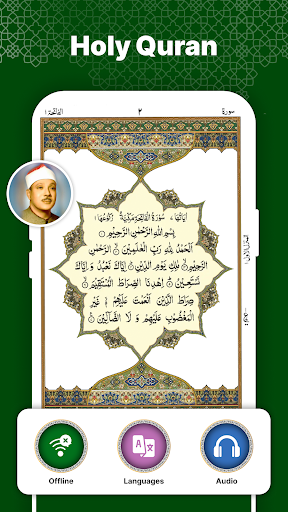 Holy Quran
الفاتحة ١
٢
سورة
اٰيَاتُهَا ٧ سُوْرَةُ الْفَاتِحَةِ مَكِّيَّةٌ رُكُوْعُهَا ١
بِسْمِ اللّٰهِ الرَّحْمٰنِ الرَّحِيْمِ
اَلْحَمْدُ لِلّٰهِ رَبِّ الْعٰلَمِيْنَ الرَّحْمٰنِ
الرَّحِيْمِ مٰلِكِ يَوْمِ الدِّيْنِ اِيَّاكَ نَعْبُدُ وَ اِيَّاكَ
نَسْتَعِيْنُ اِهْدِنَا الصِّرَاطَ الْمُسْتَقِيْمَ
صِرَاطَ الَّذِيْنَ اَنْعَمْتَ عَلَيْهِمْ غَيْرِ
الْمَغْضُوْبِ عَلَيْهِمْ وَ لَا الضَّآلِّيْنَ
Offline
Languages
Audio